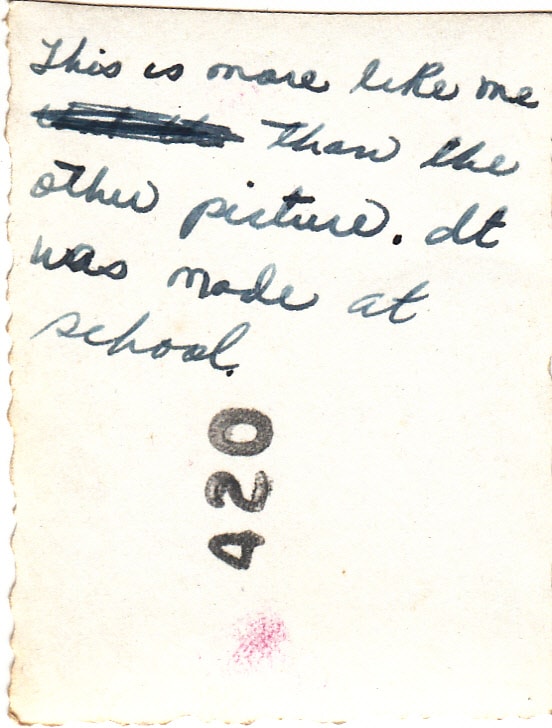 This is more like me
than the
other picture. It
was made at
school.
420